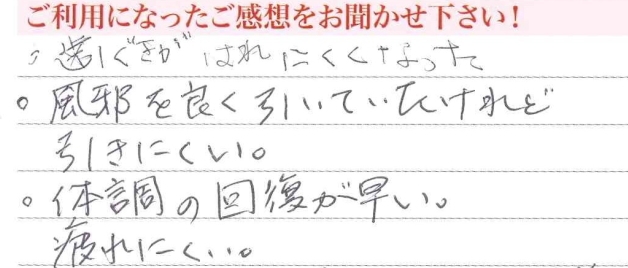 ご利用になったご感想をお聞かせ下さい!
。歯ぐきがはれにくくなった
。風邪を良く引いていたけれど
引きにくい。
。体調の回復が早い。
疲れにくい。